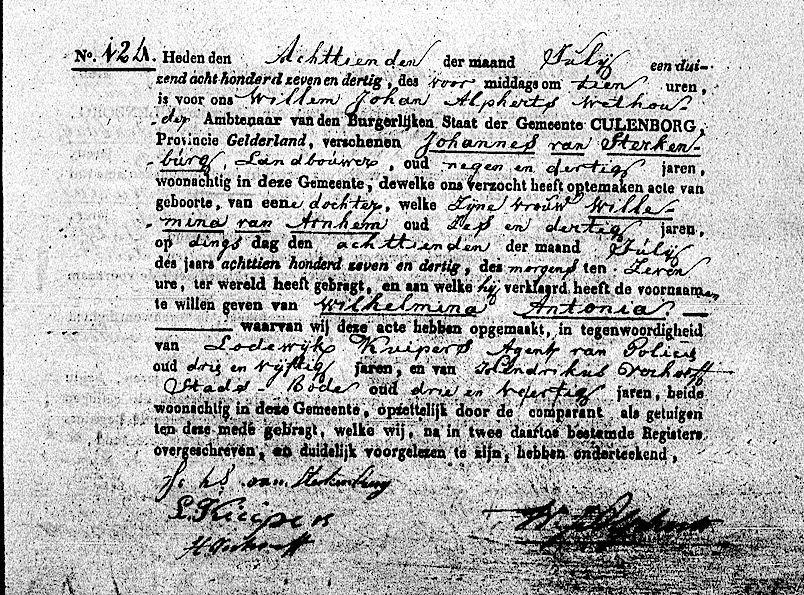 No. 124. Heden den Achttienden der maand Julij een dui-
zend acht honderd zeven en dertig, des voor middags om tien uren,
is voor ons Willem Johan Alpherts Wethou-
der Ambtenaar van den Burgerlijken Staat der Gemeente CULENBORG,
Provincie Gelderland, verschenen Johannes van Sterken-
burg, Landbouwer, oud negen en dertig jaren,
woonachtig in deze Gemeente, dewelke ons verzocht heeft optemaken acte van
geboorte, van eene dochter, welke Zijne vrouw Wille-
mina van Arnhem oud Zes en dertig jaren,
op dings dag den achttienden der maand Julij
des jaars achttien honderd zeven en dertig, des morgens ten Zeven
ure, ter wereld heeft gebragt, en aan welke hij verklaard heeft de voornaamen
te willen geven van Wilhelmina Antonia
waarvan wij deze acte hebben opgemaakt, in tegenwoordigheid
van Lodewijk Kuipers Agent van Policie
oud drie en vijftig jaren, en van Hendrikus Verhoeff
Stads-Bode oud drie en veertig jaren, beide
woonachtig in deze Gemeente, opzettelijk door de comparant als getuigen
ten deze mede gebragt, welke wij, na in twee daartoe bestemde Registers
overgeschreven, en duidelijk voorgelezen te zijn, hebben onderteekend,
Johs van Sterkenburg
L. Kuipers
H Verhoeff